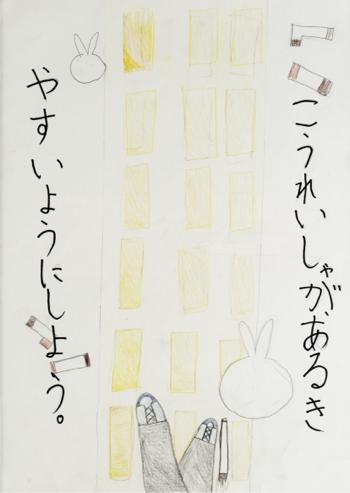 こうれいしゃが、あるき
やすいようにしよう。